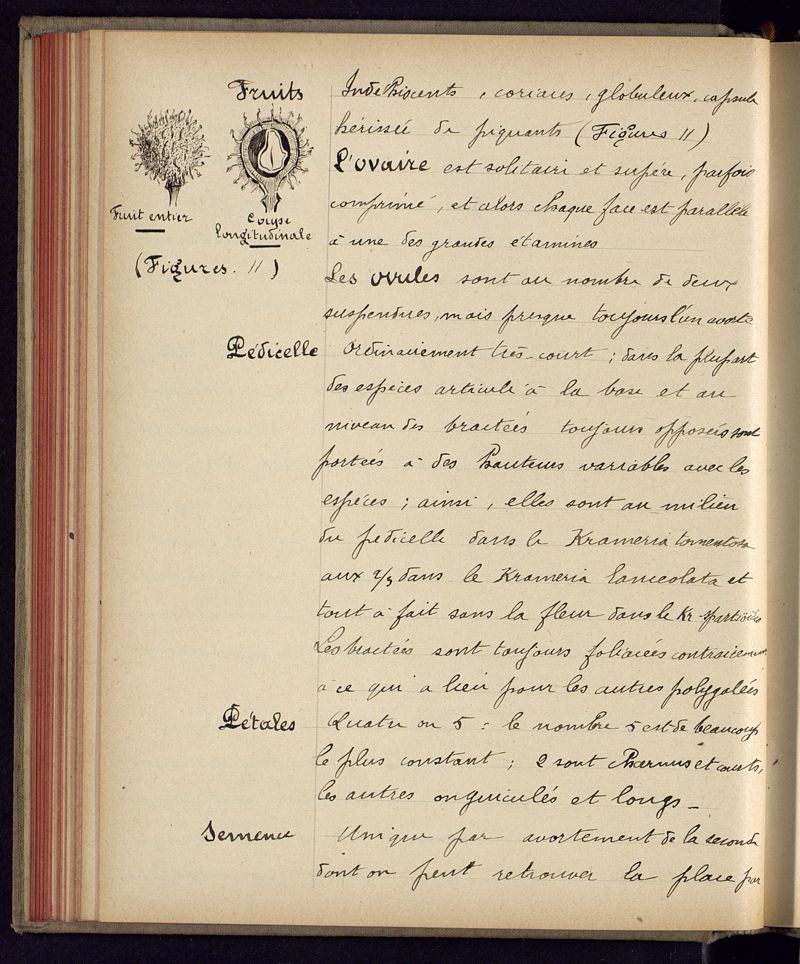 Fruits
Indehiscents, coriaces, globuleux, capsule
hérissée de piquants (Figures 11)
L'ovaire est solitaire et supére, parfois
comprimé, et alors chaque face est parallèle
à une des grandes étamines
Les ovules sont au nombre de deux
suspendues, mais presque toujours l'un avorte
Fruit entier
Coupe
longitudinale
(Figures. 11)
Pédicelle
Ordinairement très-court; dans la plupart
des espèces articulé à la base et au
niveau des bractées toujours opposées sont
portées à des hauteurs variables avec les
espèces; ainsi, elles sont au milieu
du pedicelle dans le Krameria tomentosa
aux 2/3 dans le Krameria lanceolata et
tout à fait sous la fleur dans le Kr.
Les bractées sont toujours foliacées contrairement
à ce qui a lieu pour les autres polygalées
Pétales
Quatre ou 5 : le nombre 5 est de beaucoup
le plus constant; 2 sont charnus et courts,
les autres onguiculés et longs_
Semence
Unique par avortement de la seconde
dont on peut retrouver la place par